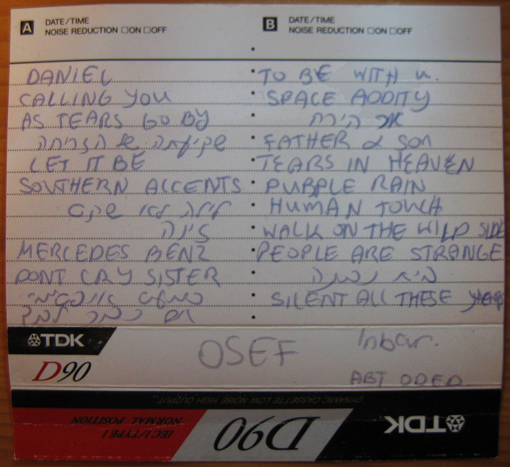 A DATE/TIME
NOISE REDUCTION □ON □OFF
B DATE/TIME
NOISE REDUCTION □ON □OFF
DANIEL
CALLING YOU
AS TEARS GO BY
שקיעתה של הזריחה
LET IT BE
SOUTHERN ACCENTS
לילה לא שקט
MERCEDES BENZ
DONT CRY SISTER
TO BE WITH U.
SPACE ODDITY
אל הירח
FATHER & SON
TEARS IN HEAVEN
PURPLE RAIN
HUMAN TOUCH
WALK ON THE WILD SIDE
PEOPLE ARE STRANGE
SILENT ALL THESE YEARS
TDK
D90
OSEF
Inbar.
ABT ODED
DYNAMIC CASSETTE LOW NOISE HIGH OUTPUT
IEC I/TYPE I
NORMAL POSITION
D90
TDK